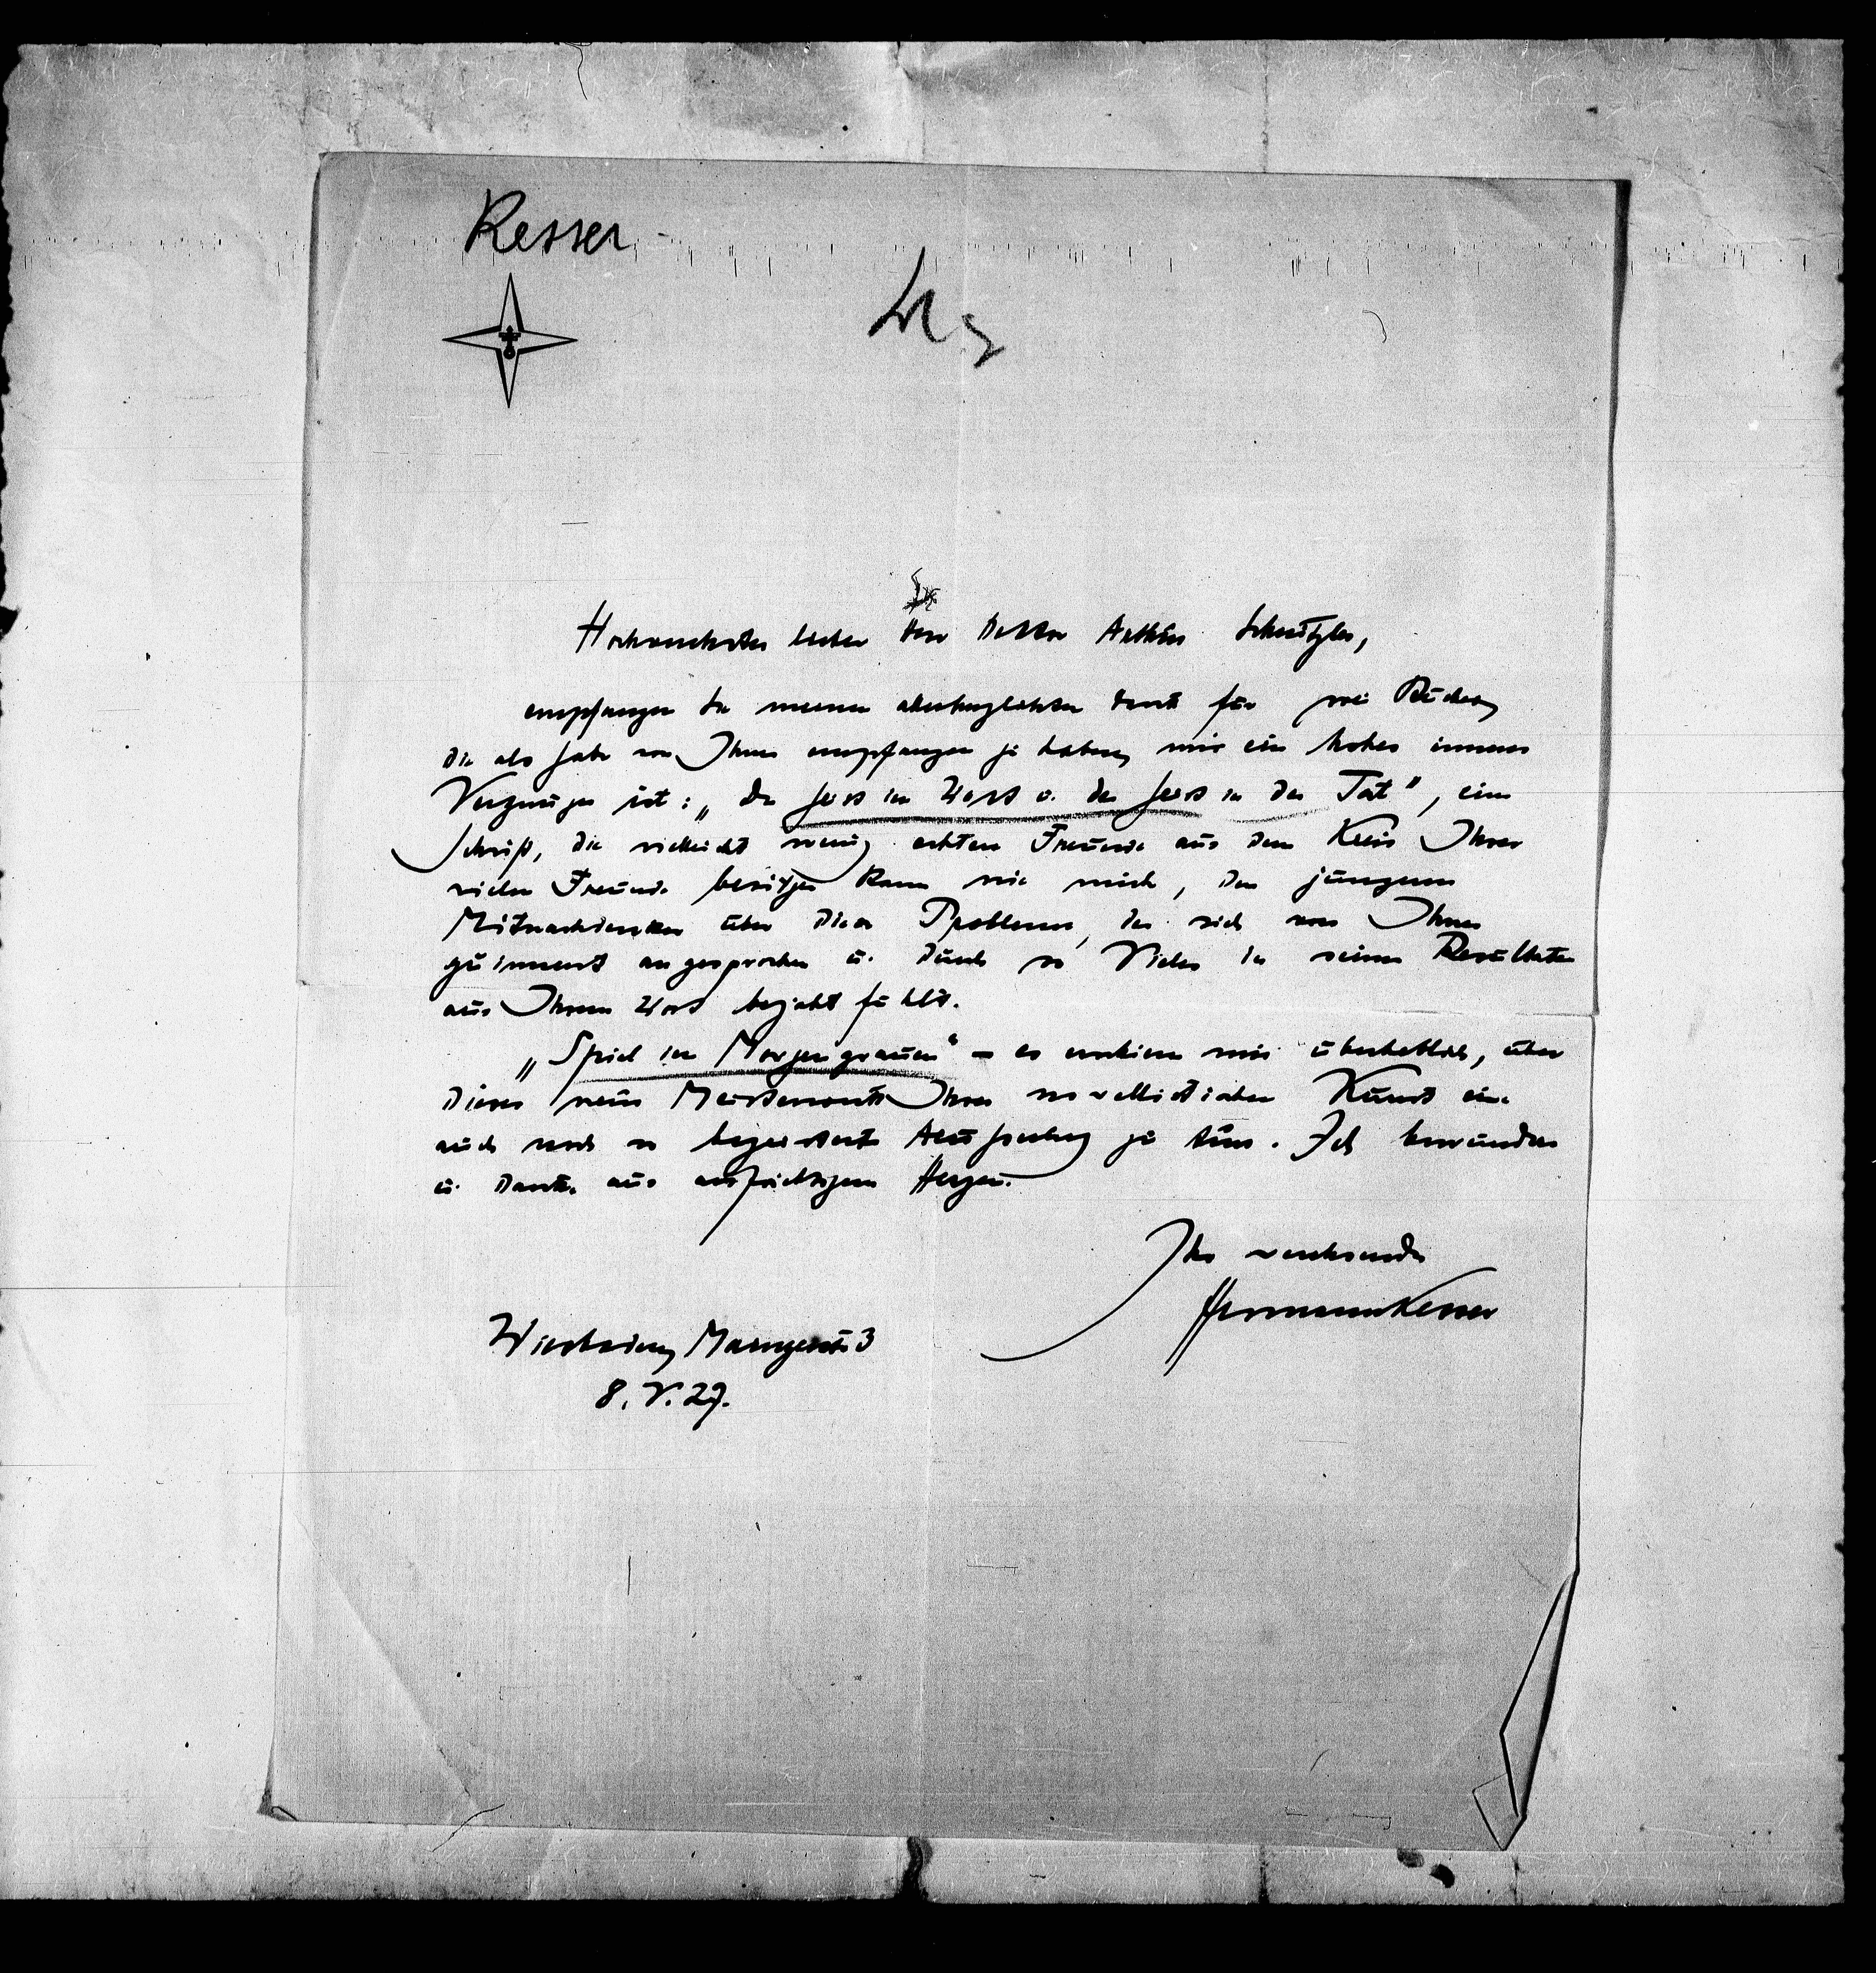 Kesser
Hochverehrter lieber Herr Doktor Arthur Schnitzler,
empfangen Sie meinen allerherzlichsten Dank für zwei Bücher,
die als Gabe von Ihnen empfangen zu haben, mir ein hohes inneres
Vergnügen ist: „Der Geist im Wort u. der Geist in der Tat", eine
Schrift, die vielleicht wenig echtere Freunde aus dem Kreis Ihrer
vielen Freunde besitzen kann wie mich, den jüngeren
Mitnachdenker über diese Probleme, der sich von Ihnen
zuinnerst angesprochen u. durch so Vieles in seinen Resultaten
aus Ihrem Wort bejaht fühlt.
„Spiel im Morgengrauen" – es erschiene mir überheblich, über
dieses neue Meisterwerk Ihrer novellistischen Kunst eine
auch noch so begeisterte Aeusserung zu tun. Ich bewundere
u. danke aus aufrichtigem Herzen.
Ihr verehrender
Hermann Kesser
Wiesbaden, 3
8. V. 27.